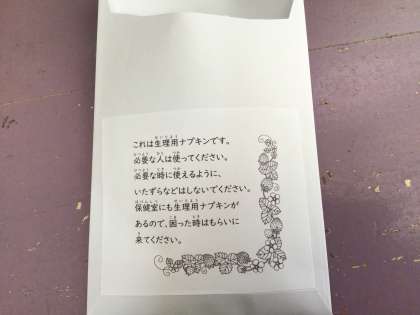 これは生理用ナプキンです。
必要な人は使ってください。
必要な時に使えるように、
いたずらなどはしないでください。
保健室にも生理用ナプキンが
あるので、困った時はもらいに
来てください。